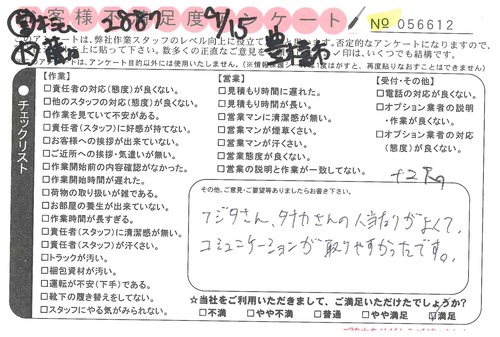 お客様不満足度アンケート
1887
9/15
No 056612
このアンケートは、弊社作業スタッフのレベル向上に役立て
否定的なアンケートになりますので、
数多くの正直なご意見を
いつでも結構です。
このアンケートは、アンケート目的以外には使用いたしません。
再度貼りなおすことはできません)
チェックリスト
【作業】
□責任者の対応(態度)が良くない。
□他のスタッフの対応(態度)が良くない。
□作業を見ていて不安がある。
□責任者(スタッフ)に好感が持てない。
□お客様への挨拶が出来ていない。
□ご近所への挨拶・気遣いが無い。
□作業開始前の内容確認がなかった。
□作業開始時間が遅れた。
□荷物の取り扱いが雑である。
□お部屋の養生が出来ていない。
□作業時間が長すぎる。
□責任者(スタッフ)に清潔感が無い。
□責任者(スタッフ)が汗くさい。
□トラックが汚い。
□梱包資材が汚い。
□運転が不安(下手)である。
□靴下の履き替えをしてない。
□スタッフにやる気がみられない。
【営業】
□見積もり時間に遅れた。
□見積もり時間が長い。
□営業マンに清潔感が無い。
□営業マンが煙草くさい。
□営業マンが汗くさい。
□営業態度が良くない。
□営業の説明と作業が一致してない。
【受付・その他】
□電話の対応が良くない。
□オプション業者の説明
・作業が良くない。
□オプション業者の対応
(態度)が良くない。
その他、ご意見・ご要望等ありましたらお書き下さい。
フジタさん、タナカさんの人当たりがよくて、
コミュニケーションが取りやすかったです。
☆当社をご利用いただきまして、ご満足いただけたでしょうか?
□不満 □やや不満 □普通 □やや満足 ☑満足